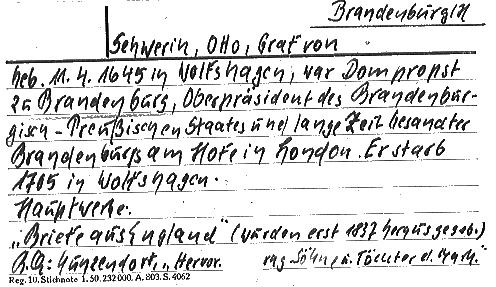 Brandenburg/H
Schwerin, Otto, Graf von
Geb. 11. 4. 1645 in Wolfshagen, war Dompropst
zu Brandenburg, Oberpräsident des Brandenbur-
gisch-Preußischen Staates und lange Zeit Gesandter
Brandenburgs am Hofe in London. Er starb
1705 in Wolfshagen.
Hauptwerke:
„Briefe aus England“ (wurden erst 1837 herausgegeb.)
B.Q: „Hervor- rag. Söhne u. Töchter d. Mark.“
Reg. 10. Stichnote 1. 50. 232 000. A. 803. S. 4062